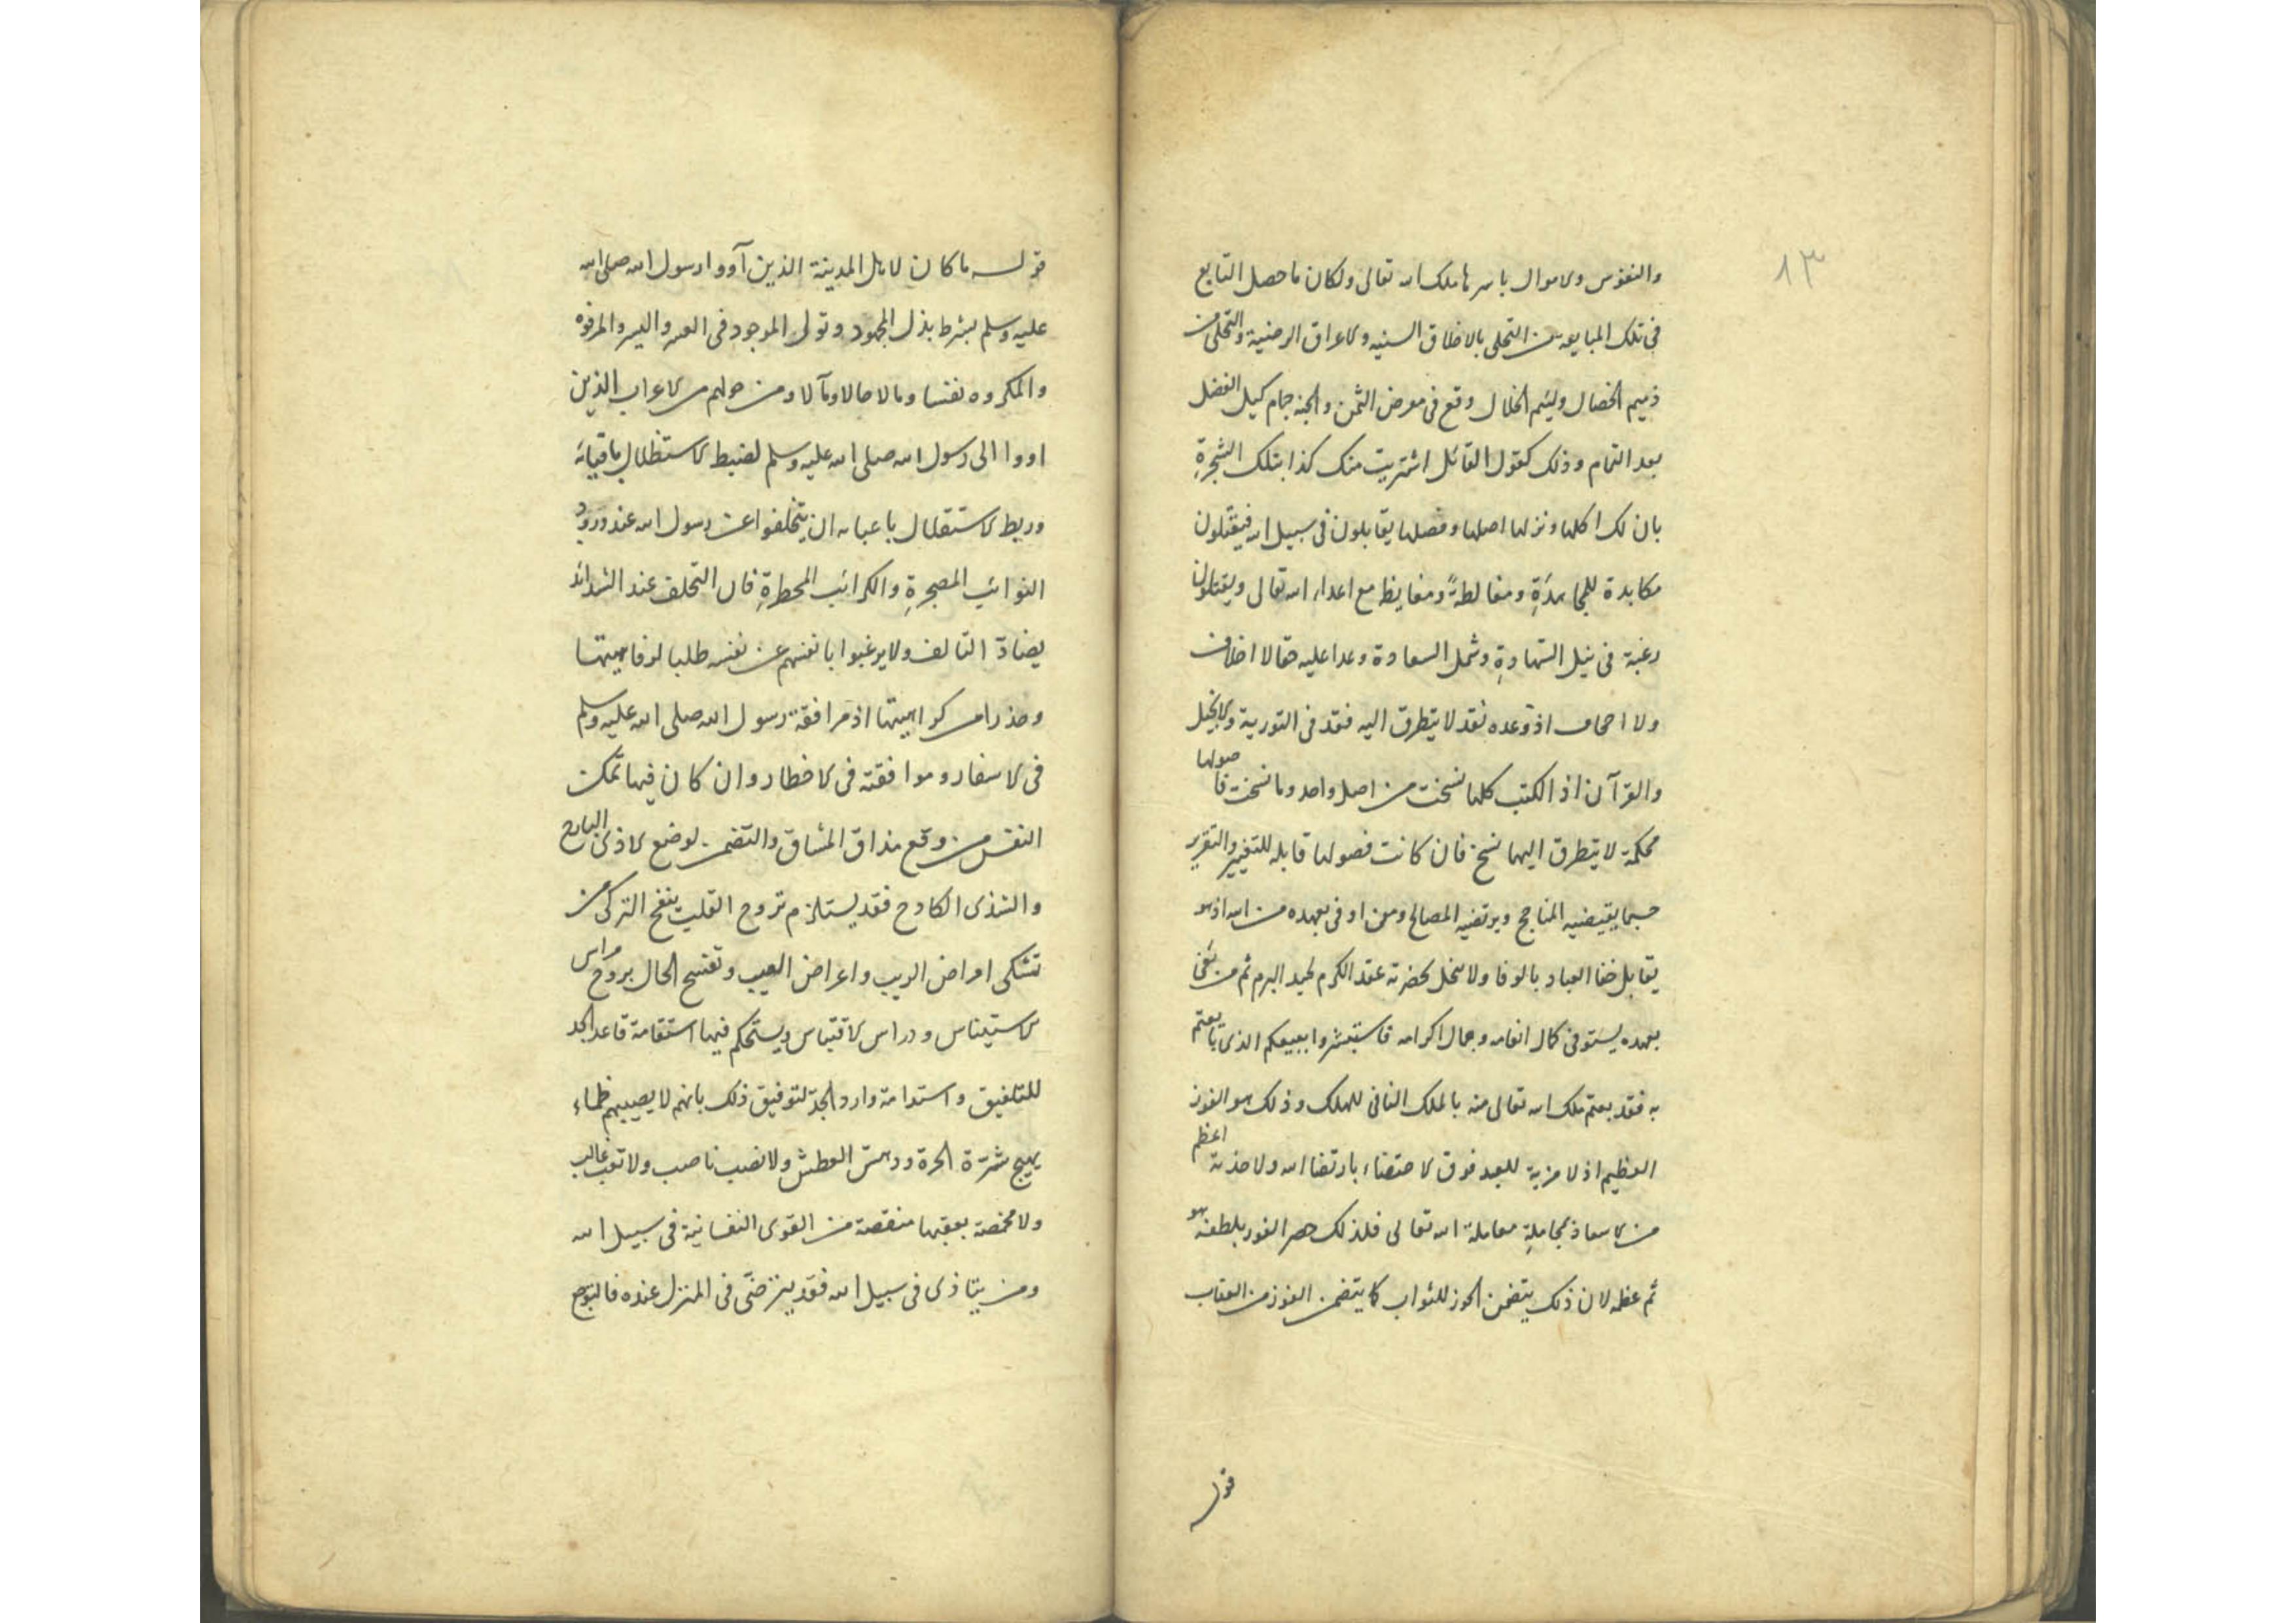 ١٣
والنفوس والاموال باسرها ملك الله تعالى ولكان ما حصل التابع
فى تلك المبايعة من التحلى بالاخلاق السنيه والاعراق الرضية والتخلى من
ذميم الخصال ولئيم الخلال وقع فى معرض الثمن والجنة جام كيل الفضل
بعد التمام وذلك كقول القائل اشتريت منك كذا بتلك الشجرة
بان لك اكلها ونزلها اصلها وفصلها يقاتلون فى سبيل الله فيقتلون
مكابدة للمجاهدة ومغالطة ومغايظ مع اعداء الله تعالى ويقتلون
رغبة فى نيل الشهادة وشمل السعادة وعدا عليه حقا لا اخلاف
ولا اذ وعده نقد لا يتطرق اليه فقد فى التورية والانجيل
والقرآن اذ الكتب كلها نسخت من اصل واحد وما نسخت فاصولها
محكمة لا يتطرق اليها نسخ فان كانت فصولها قابلة للتغيير والتقرير
حسبما يقتضيه المناجح ويرتضيه المصالح ومن اوفى بعهده من الله اذ هو
يقابل خفا العباد بالوفا ولا يخل لحضرته عقد الكرم ثم من
بعهده يستوفى كمال انعامه وجمال اكرامه فاستبشروا ببيعكم الذى بايعتم
به فقد بعتم ملك الله تعالى منه بالملك الفانى للهلك وذلك هو الفوز
العظيم اذ لا مزية للعبد فوق الاحتضاء بارتضا الله ولا اعظم
من بمجاملة معاملة الله تعالى فلذلك حصر الفوز بلطفه هو
ثم عظمه لان ذلك يتضمن الحوز للثواب كما يتضمن الفوز من العقاب
قوله
قوله ما كان لاهل المدينة الذين آووا رسول الله صلى الله
عليه وسلم بشرط بذل المجهود وتولى الموجود فى العسر واليسر والمرفوه
والمكروه نفسا ومالا حالا ومآلا ومن حولهم من الاعراب الذين
اووا الى رسول الله صلى الله عليه وسلم لضبط الاستظلال بافيائه
وربط الاستقلال باعبائه ان يتخلفوا عن رسول الله عند ورود
النوائب المضجرة والكرائب المخطرة فان التخلف عند الشدائد
يضاد التالف ولا يرغبوا بانفسهم عن نفسه طلبا لرفاهيتها
وحذرا من كراهيتها اذ مرافقة رسول الله صلى الله عليه وسلم
فى الاسفار وموافقته فى الاخطار وان كان فيها تمكن
النفس من وقع مذاق المشاق والتضمن لوضع الاذى البارح
والشذى الكادح فقد يستلزم تروح القلب بنفح التزكى من
تشكى امراض الريب واعراض العيب وتفسح الحال بروح مراس
الاستيناس ودراس الاقتباس ويستحكم فيها استقامة قاعد الجد
للتلفيق واستدامة وارد الجد لتوفيق ذلك بانهم لا يصيبهم ظماء
يهيج شرة الحرة ودهس العطش ولا نصب ناصب ولا تعب غالب
ولا مخمصة يعقبها منقصة من القوى النفسانية فى سبيل الله
ومن يتاذى فى سبيل الله فقد يترضى فى المنزل عنده فالتوجع